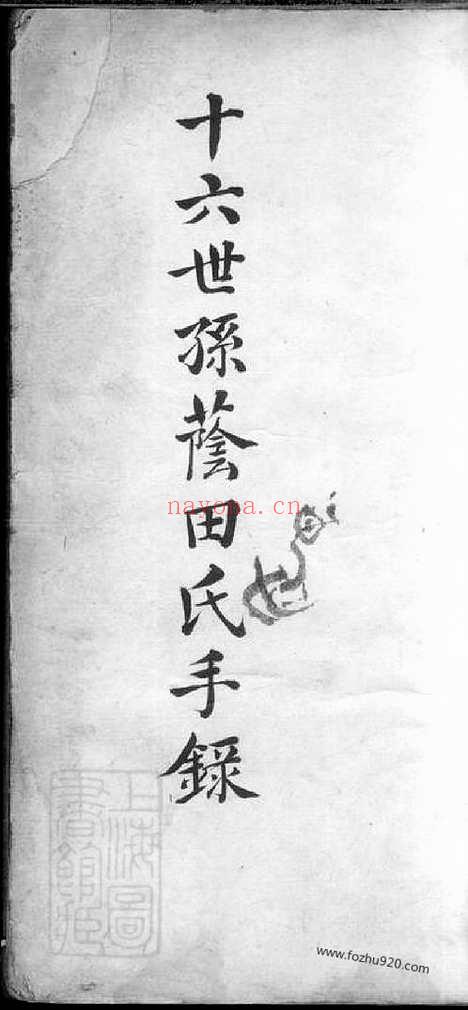 十六世孫蔭田氏手錄
nayona.cn
上海圖
書館藏
www.fozhu920.com